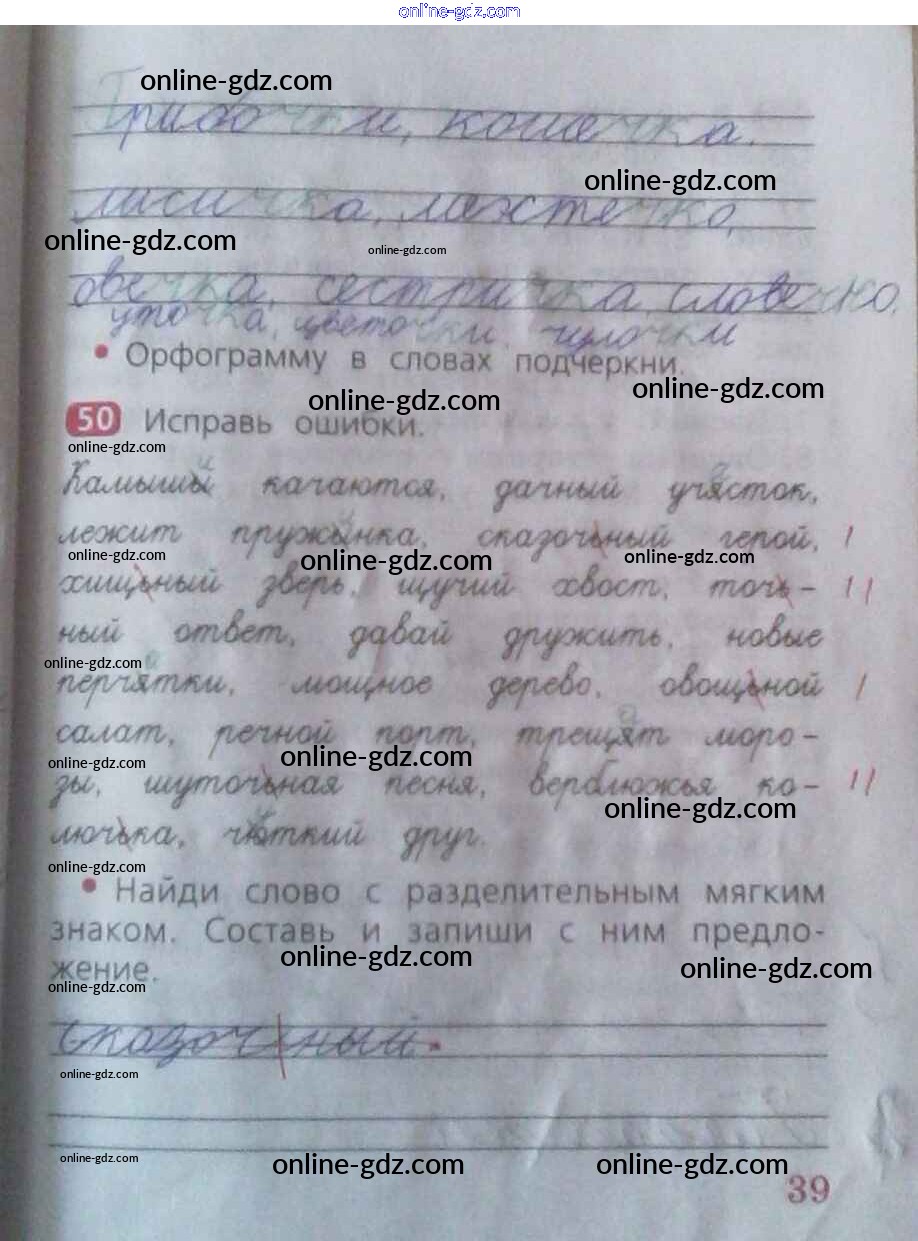 online-gdz.com
online-gdz.com
Грибочки, кошечка,
online-gdz.com
лисичка, местечко,
online-gdz.com
online-gdz.com
овечка, сестричка, словечко,
уточка, цветочки, чулочки
• Орфограмму в словах подчеркни.
online-gdz.com
online-gdz.com
50 Исправь ошибки.
online-gdz.com
и
Камышы качаются, дачный учясток,
лежит пружынка, сказочьный герой, I
online-gdz.com
online-gdz.com
online-gdz.com
хищьный зверь, щучий хвост, точь- II
ный ответ, давай дружить, новые
online-gdz.com
а
перчятки, мощное дерево, овощьной I
а
салат, речной порт, трещят моро-
online-gdz.com
online-gdz.com
зы, шуточьная песня, верблюжья ко- II
online-gdz.com
лючька, чюткий друг.
online-gdz.com
• Найди слово с разделительным мягким
знаком. Составь и запиши с ним предло-
жение.
online-gdz.com
online-gdz.com
online-gdz.com
сказочный.
online-gdz.com
online-gdz.com
online-gdz.com
online-gdz.com
39